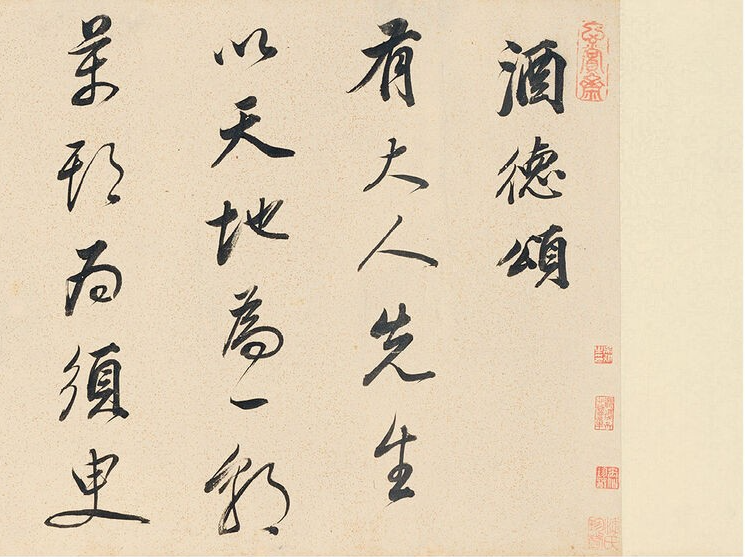 玄賞齋
酒德頌
有大人先生
以天地為一朝
萬期為須臾